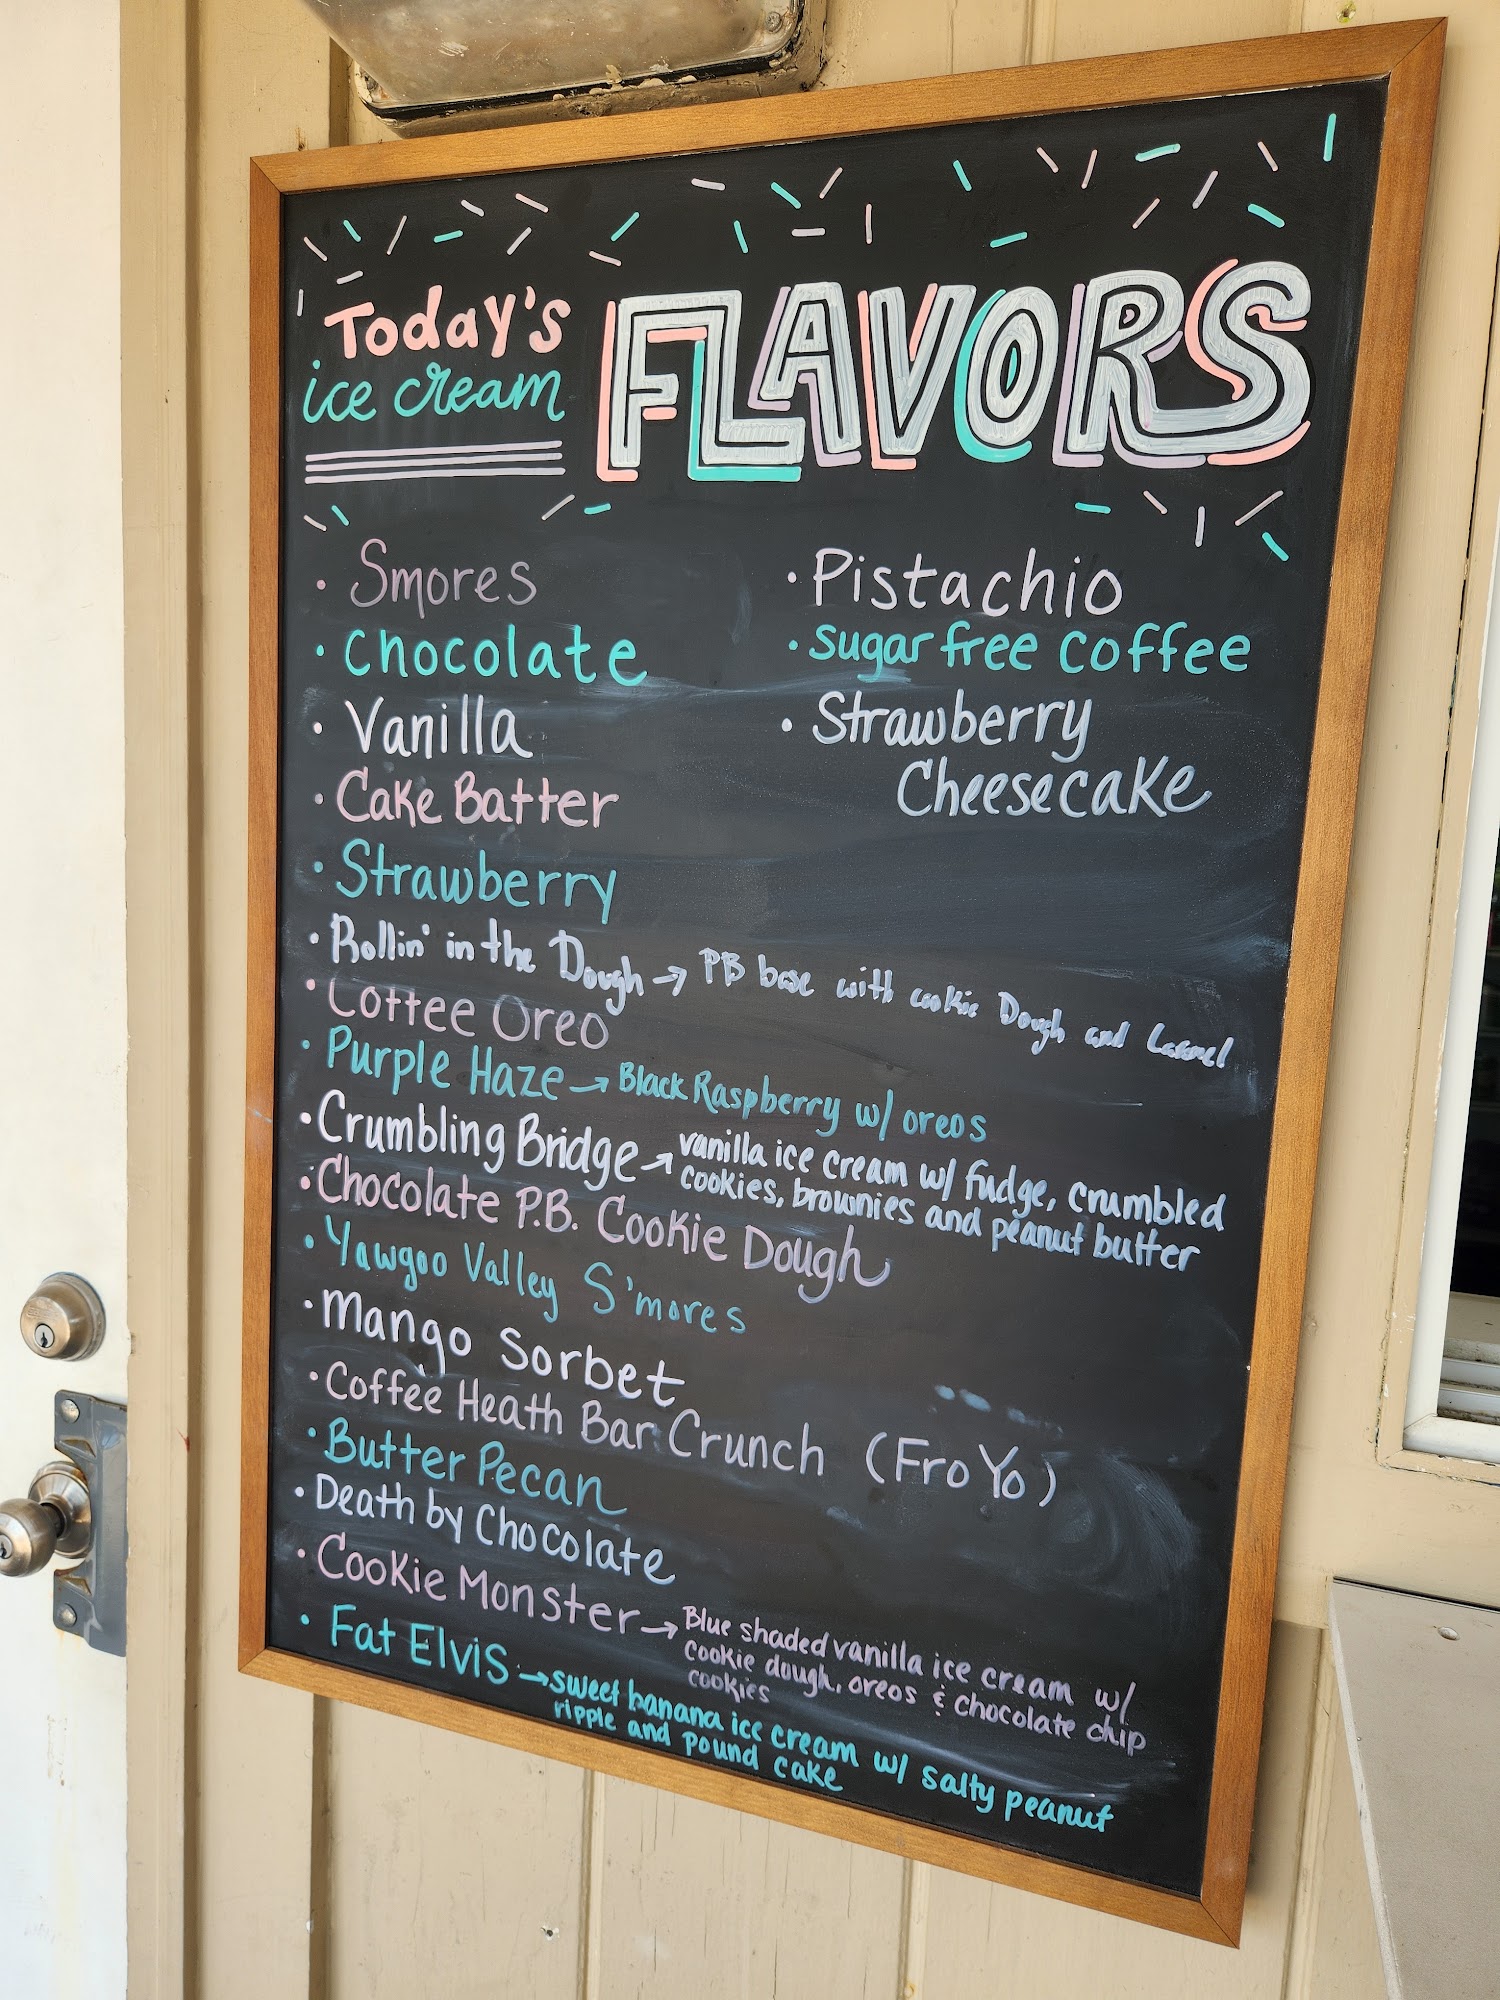 Today's
ice cream
FLAVORS
• Smores
• Chocolate
• Vanilla
• Cake Batter
• Strawberry
• Rollin' in the Dough → PB base with cookie Dough and Caramel
• Coffee Oreo
• Purple Haze → Black Raspberry w/ oreos
• Crumbling Bridge → vanilla ice cream w/ fudge, crumbled
cookies, brownies and peanut butter
• Chocolate P.B. Cookie Dough
• Yawgoo Valley S'mores
• Mango Sorbet
• Coffee Heath Bar Crunch (Fro Yo)
• Butter Pecan
• Death by Chocolate
• Cookie Monster → Blue shaded vanilla ice cream w/
cookie dough, oreos & chocolate chip
cookies
• Fat Elvis → sweet banana ice cream w/ salty peanut
ripple and pound cake
• Pistachio
• Sugar free Coffee
• Strawberry
Cheesecake